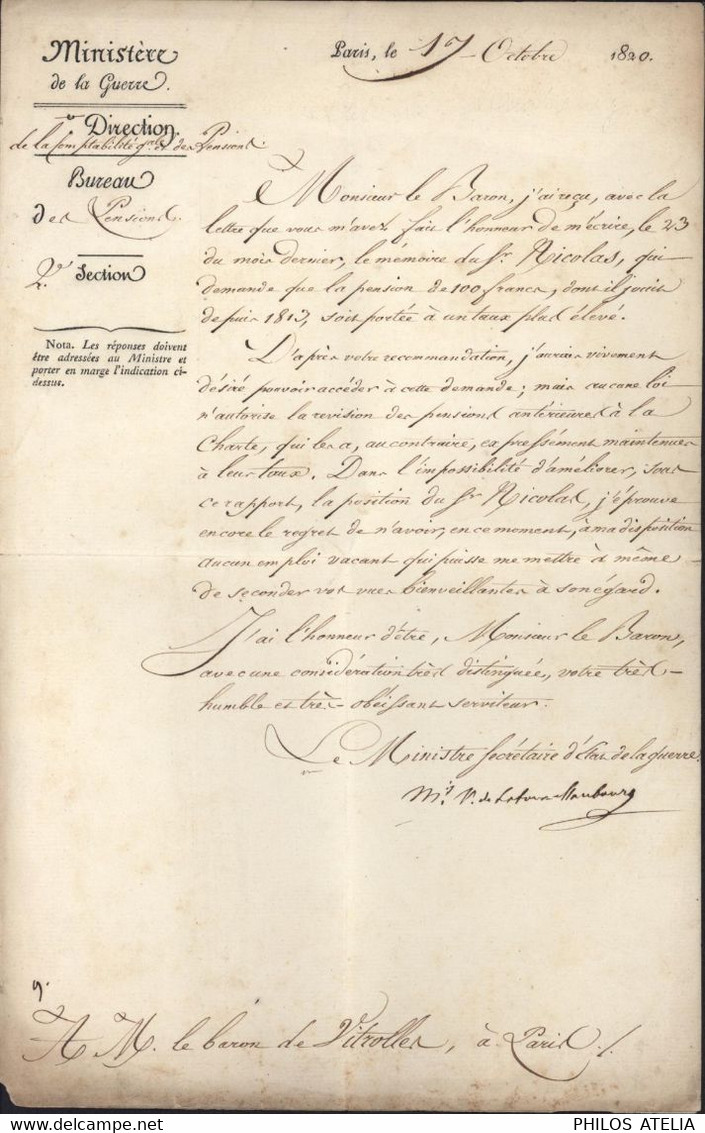 Ministère
de la Guerre.
Paris, le 17 Octobre 1820.
Direction
de la Comptabilité gale et des Pensions.
Bureau
des Pensions.
2e Section
Nota. Les réponses doivent
être adressées au Ministre et
porter en marge l'indication ci-
dessus.
Monsieur le Baron, j'ai reçu, avec la
lettre que vous m'avez fait l'honneur de m'écrire, le 23
du mois dernier, le mémoire du Sr. Nicolas, qui
demande que la pension de 100 francs, dont il jouit
depuis 1813, soit portée à un taux plus élevé.
D'après votre recommandation, j'aurais vivement
désiré pouvoir accéder à cette demande; mais aucune loi
n'autorise la revision des pensions antérieures à la
Charte, qui les a, au contraire, expressément maintenues
à leur taux. Dans l'impossibilité d'améliorer, sous
ce rapport, la position du Sr. Nicolas, j'éprouve
encore le regret de n'avoir, en ce moment, à ma disposition
aucun emploi vacant qui puisse me mettre à même
de seconder vos vues bienveillantes à son égard.
J'ai l'honneur d'être, Monsieur le Baron,
avec une considération très distinguée, votre très-
humble et très-obéissant serviteur.
Le Ministre Secrétaire d'état de la guerre.
Mis. V. de Latour Maubourg
A M. le baron de Vitrolles, à Paris ./.
delcampe.net
PHILOS ATELIA